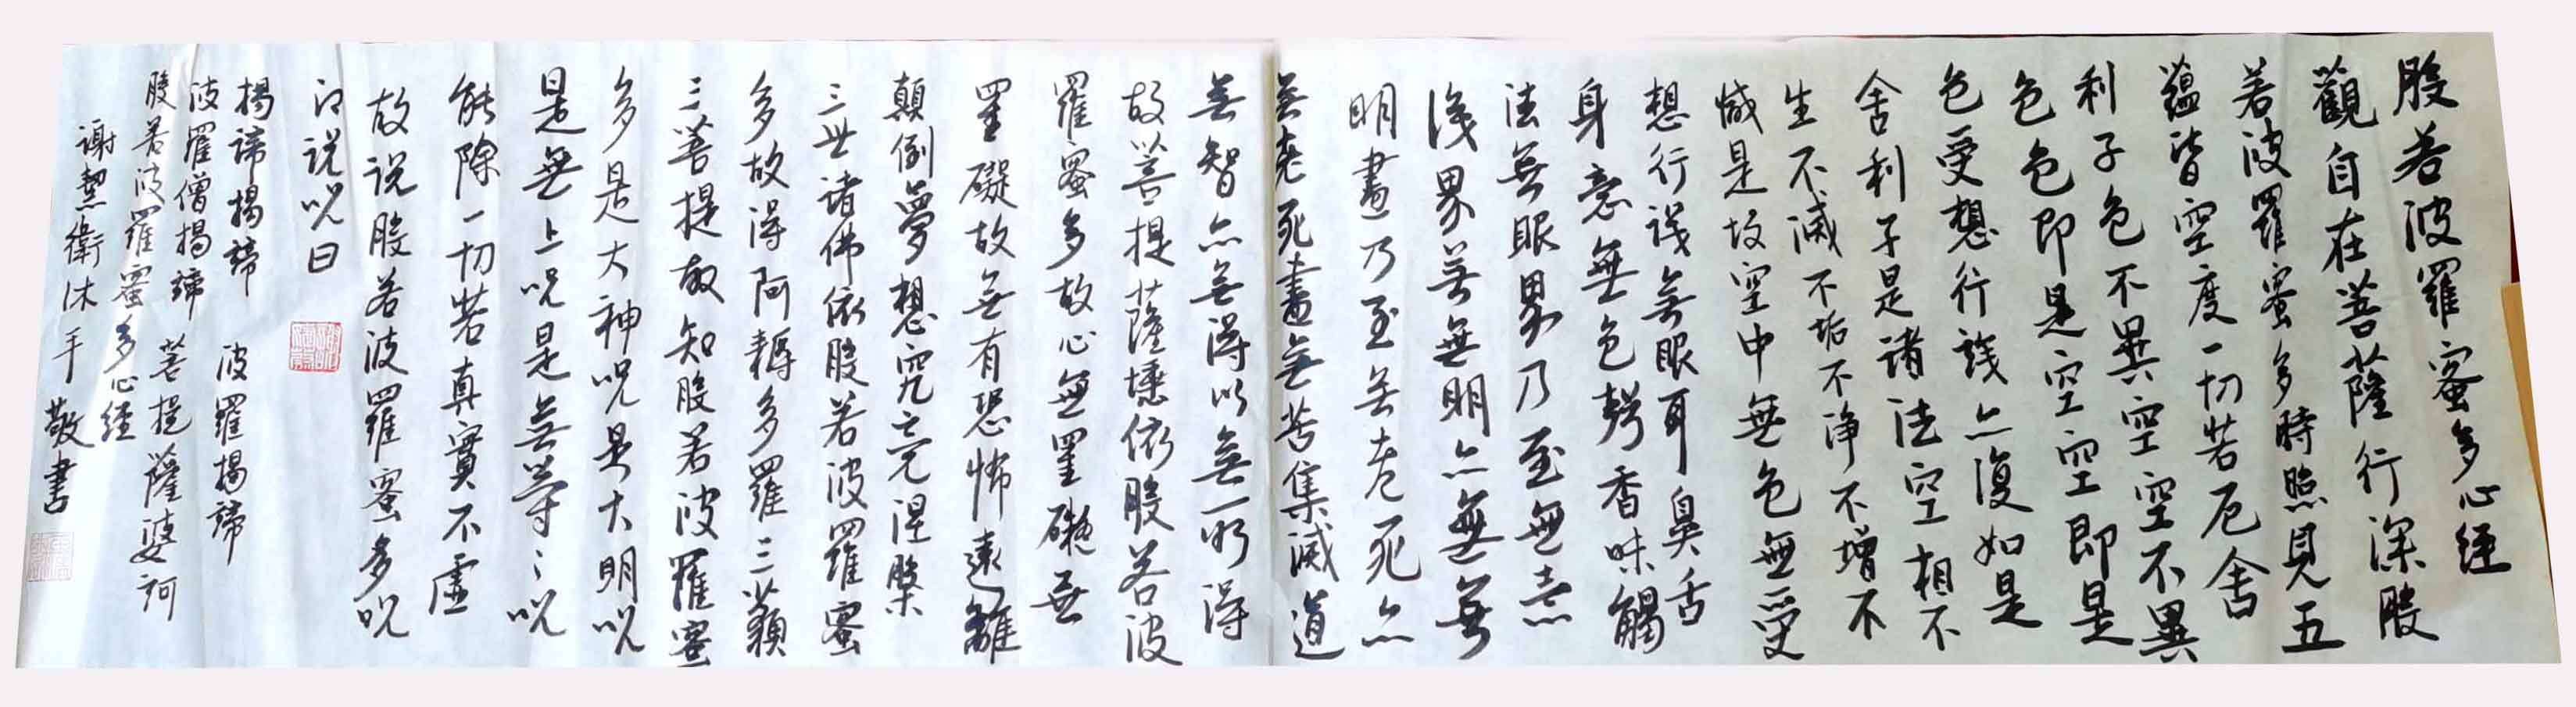 般若波羅蜜多心經
觀自在菩薩行深般
若波羅蜜多時照見五
蘊皆空度一切苦厄舍
利子色不異空空不異
色色即是空空即是
色受想行識亦復如是
舍利子是諸法空相不
生不滅不垢不淨不增不
減是故空中無色無受
想行識無眼耳鼻舌
身意無色聲香味觸
法無眼界乃至無意
識界無無明亦無無
明盡乃至無老死亦
無老死盡無苦集滅道
無智亦無得以無所得
故菩提薩埵依般若波
羅蜜多故心無罣礙無
罣礙故無有恐怖遠離
顛倒夢想究竟涅槃
三世諸佛依般若波羅蜜
多故得阿耨多羅三藐
三菩提故知般若波羅蜜
多是大神呪是大明呪
是無上呪是無等等呪
能除一切苦真實不虛
故說般若波羅蜜多呪
即說呪曰
揭諦揭諦 波羅揭諦
波羅僧揭諦 菩提薩婆訶
般若波羅蜜多心經
謝 衛 沐手敬書